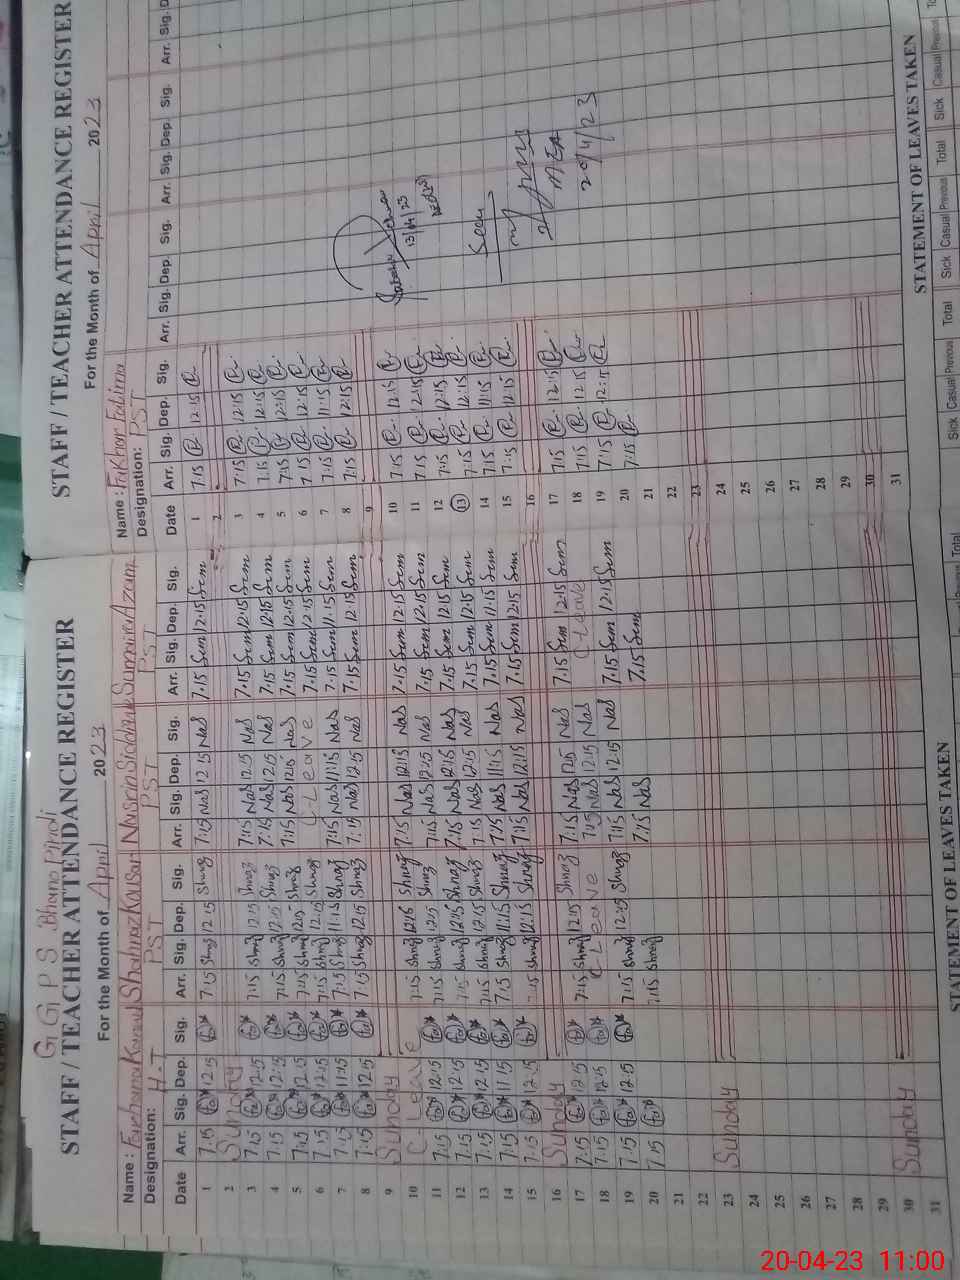 G G P S Bhono Pindi
STAFF / TEACHER ATTENDANCE REGISTER
For the Month of April 2023
Name : Farhana Kanwal Shahnaz Kousar Nasrin Siddique Sumaira Azam
Designation: H.T PST PST PST
Date Arr. Sig. Dep. Sig. Arr. Sig. Dep. Sig. Arr. Sig. Dep. Sig. Arr. Sig. Dep. Sig.
1 7:15 12:15 7:15 Shnaz 12:15 Shnaz 7:15 Nas 12:15 Nas 7:15 Sem 12:15 Sem
2 Sunday
3 7:15 12:15 7:15 Shnaz 12:15 Shnaz 7:15 Nas 12:15 Nas 7:15 Sem 12:15 Sem
4 7:15 12:15 7:15 Shnaz 12:15 Shnaz 7:15 Nas 12:15 Nas 7:15 Sem 12:15 Sem
5 7:15 12:15 7:15 Shnaz 12:15 Shnaz 7:15 Nas 12:15 Nas 7:15 Sem 12:15 Sem
6 7:15 12:15 7:15 Shnaz 12:15 Shnaz C-Leave 7:15 Sem 12:15 Sem
7 7:15 11:15 7:15 Shnaz 11:15 Shnaz 7:15 Nas 11:15 Nas 7:15 Sem 11:15 Sem
8 7:15 12:15 7:15 Shnaz 12:15 Shnaz 7:15 Nas 12:15 Nas 7:15 Sem 12:15 Sem
9 Sunday
10 C Leave 7:15 Shnaz 12:15 Shnaz 7:15 Nas 12:15 Nas 7:15 Sem 12:15 Sem
11 7:15 12:15 7:15 Shnaz 12:15 Shnaz 7:15 Nas 12:15 Nas 7:15 Sem 12:15 Sem
12 7:15 12:15 7:15 Shnaz 12:15 Shnaz 7:15 Nas 12:15 Nas 7:15 Sem 12:15 Sem
13 7:15 12:15 7:15 Shnaz 12:15 Shnaz 7:15 Nas 12:15 Nas 7:15 Sem 12:15 Sem
14 7:15 11:15 7:15 Shnaz 11:15 Shnaz 7:15 Nas 11:15 Nas 7:15 Sem 11:15 Sem
15 7:15 12:15 7:15 Shnaz 12:15 Shnaz 7:15 Nas 12:15 Nas 7:15 Sem 12:15 Sem
16 Sunday
17 7:15 12:15 7:15 Shnaz 12:15 Shnaz 7:15 Nas 12:15 Nas 7:15 Sem 12:15 Sem
18 7:15 12:15 C Leave 7:15 Nas 12:15 Nas C-Leave
19 7:15 12:15 7:15 Shnaz 12:15 Shnaz 7:15 Nas 12:15 Nas 7:15 Sem 12:15 Sem
20 7:15 7:15 Shnaz 7:15 Nas 7:15 Sem
21
22
23 Sunday
24
25
26
27
28
29
30 Sunday
31
STATEMENT OF LEAVES TAKEN
Total
STAFF / TEACHER ATTENDANCE REGISTER
For the Month of April 2023
Name : Fakhar Fatima
Designation: PST
Date Arr. Sig. Dep. Sig. Arr. Sig. Dep. Sig. Arr. Sig. Dep. Sig. Arr. Sig. D
1 7:15 12:15
2
3 7:15 12:15
4 7:15 12:15
5 7:15 12:15
6 7:15 12:15
7 7:15 11:15
8 7:15 12:15
9
10 7:15 12:15
11 7:15 12:15
12 7:15 12:15
13 7:15 12:15
14 7:15 11:15
15 7:15 12:15
16
17 7:15 12:15
18 7:15 12:15
19 7:15 12:15
20 7:15
21
22
23
24
25
26
27
28
29
30
31
13/04/23
Seen
MEA
20/4/23
STATEMENT OF LEAVES TAKEN
Sick Casual Previous Total Sick Casual Previous Total Sick Casual Previous
20-04-23 11:00